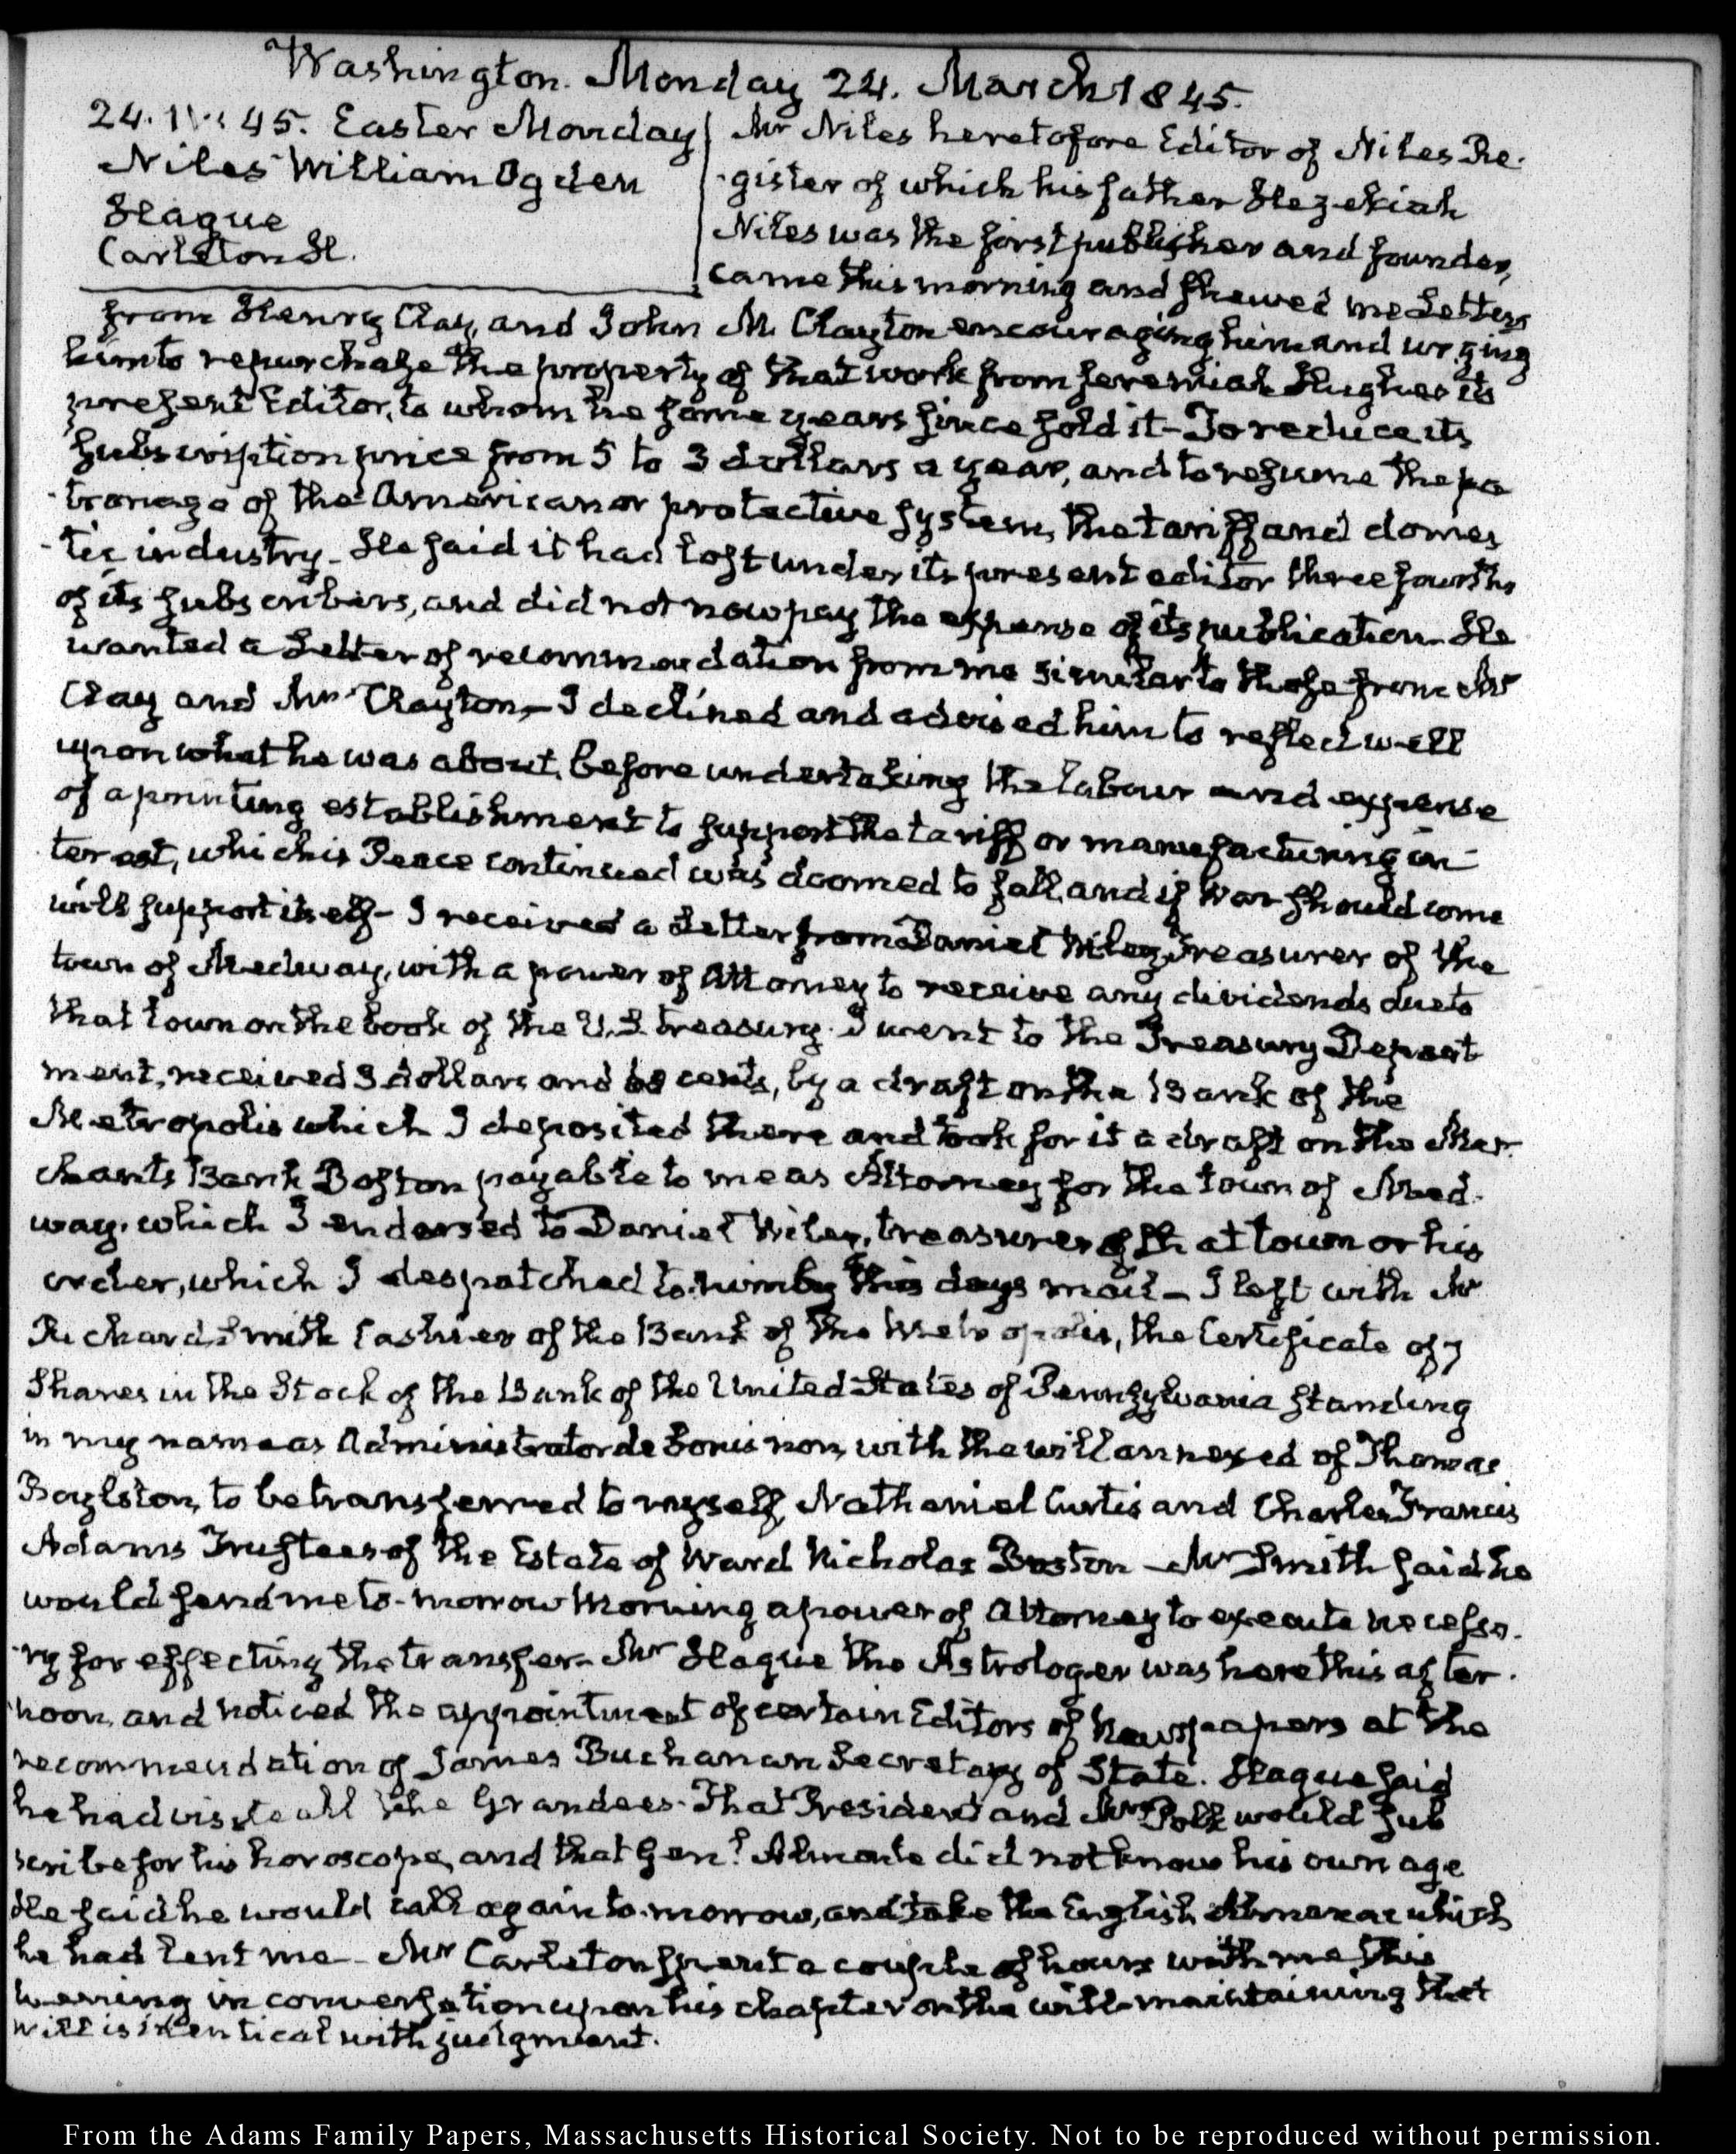 Washington. Monday 24. March 1845.
24. 45. Easter Monday
Niles William Ogden
Hague
Carleton H.
Mr Niles heretofore Editor of Niles Re-
-gister of which his father Hezekiah
Niles was the first publisher and founder,
came this morning and shewed me Letters
from Henry Clay, and John M. Clayton encouraging him and urging
him to repurchase the property of that work from Jeremiah Hughes its
present Editor, to whom he some years since sold it—To reduce its
subscription price from 5 to 3 dollars a year, and to resume the pa
-tronage of the American or protective system, the tariff and domes
-tic industry— He said it had lost under its present editor three fourths
of its subscribers, and did not now pay the expense of its publication— He
wanted a Letter of recommendation from me similar to those from Mr
Clay and Mr Clayton,— I declined and advised him to reflect well
upon what he was about, before undertaking the labour and expense
of a printing establishment to support the tariff or manufacturing in-
terest, which is Peace continued was doomed to fall, and if War should come
will support itself— I received a Letter from Daniel Wiley, Treasurer of the
town of Medway, with a power of Attorney to receive any dividends due to
that town on the book of the U.S. treasury. I went to the Treasury Depart
ment, received 3 dollars and cents, by a draft on the Bank of the
Metropolis which I deposited there and took for it a draft on the Mer-
chants Bank Boston payable to me as Attorney for the town of Med-
way, which I endorsed to Daniel Wiley, treasurer of that town or his
order, which I despatched to him by this days mail— I left with Mr
Richard Smith Cashier of the Bank of the Metropolis, the Certificate of 7
Shares in the Stock of the Bank of the United States of Pennsylvania standing
in my name as Administrator de bonis non, with the will annexed of Thomas
Boylston, to be transferred to myself, Nathaniel Curtis and Charles Francis
Adams Trustees of the Estate of Ward Nicholas Boston— Mr Smith said he
would send me to-morrow Morning a power of Attorney to execute necessa-
-ry for effecting the transfer— Mr Hague the Astrologer was here this after-
noon, and noticed the appointment of certain Editors of Newspapers at the
recommendation of James Buchanan Secretary of State. Hague said
he had all the Grandees. That President and Mrs Polk would sub
scribe for his horoscope, and that Genl. Almonte did not know his own age
He said he would call again to-morrow, and take the English Almanac which
he had lent me— Mr Carleton spent a couple of hours with me this
evening in conversation upon his chapter on the will—maintaining that
will is identical with judgment.
From the Adams Family Papers, Massachusetts Historical Society. Not to be reproduced without permission.